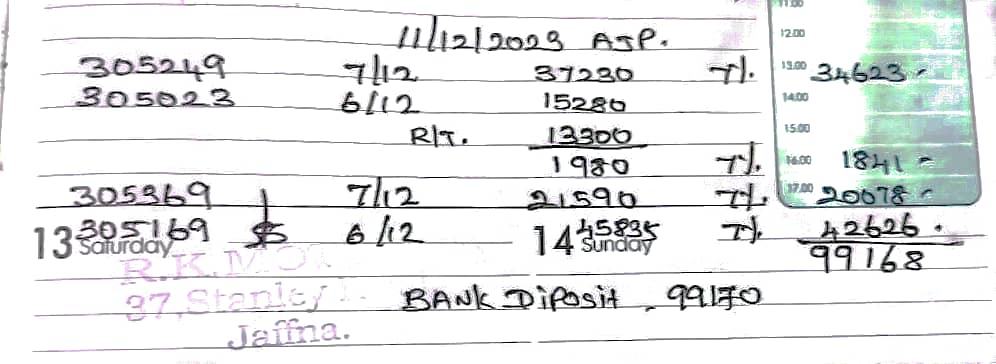 11.00
11/12/2023 AJP.
12.00
305249 7/12 37230 7%. 13.00 34623 -
305023 6/12 15280 14.00
R/T. 13300 15.00
1980 7%. 16.00 1841 -
305369 7/12 21590 7%. 17.00 20078 -
13 Saturday 305169 $ 6/12 14 Sunday 45835 7%. 42626 .
99168
R.K.M
37, Stanley
BANK DiPosit . 99170
Jaffna.